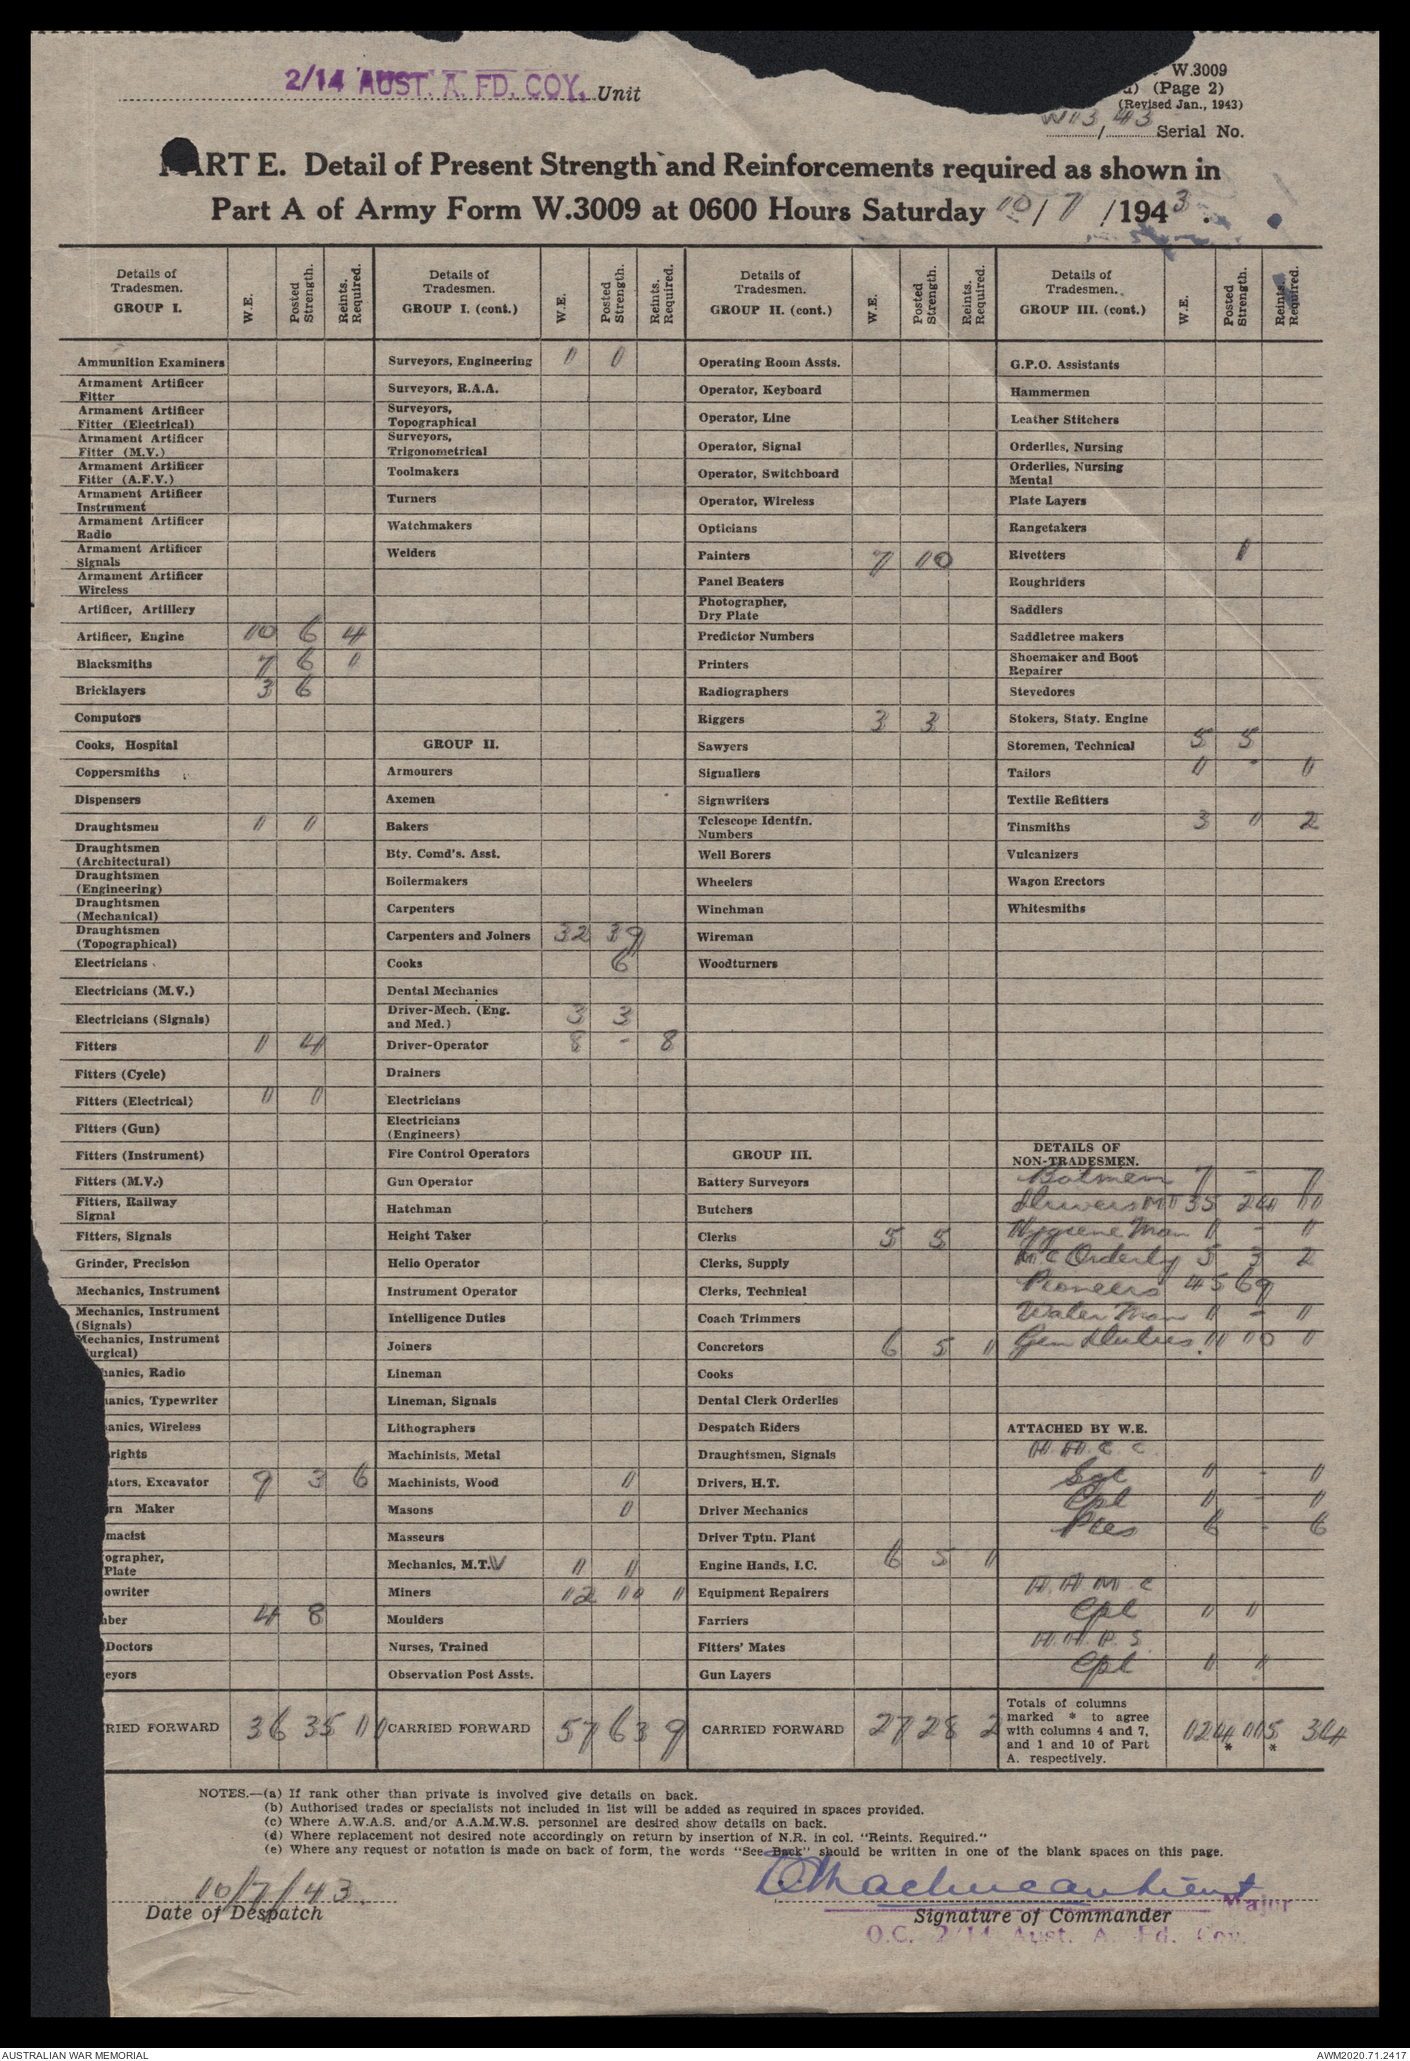 2/14 AUST. A. FD. COY. Unit
W.3009
(Page 2)
(Revised Jan., 1943)
W113/43 Serial No.
PART E. Detail of Present Strength and Reinforcements required as shown in
Part A of Army Form W.3009 at 0600 Hours Saturday 10/7/1943.
Details of Tradesmen. GROUP I. W.E. Posted Strength. Reints. Required.
Ammunition Examiners
Armament Artificer Fitter
Armament Artificer Fitter (Electrical)
Armament Artificer Fitter (M.V.)
Armament Artificer Fitter (A.F.V.)
Armament Artificer Instrument
Armament Artificer Radio
Armament Artificer Signals
Armament Artificer Wireless
Artificer, Artillery
Artificer, Engine 10 6 4
Blacksmiths 7 6 1
Bricklayers 3 6
Computors
Cooks, Hospital
Coppersmiths
Dispensers
Draughtsmen 1 1
Draughtsmen (Architectural)
Draughtsmen (Engineering)
Draughtsmen (Mechanical)
Draughtsmen (Topographical)
Electricians
Electricians (M.V.)
Electricians (Signals)
Fitters 1 4
Fitters (Cycle)
Fitters (Electrical) 1 1
Fitters (Gun)
Fitters (Instrument)
Fitters (M.V.)
Fitters, Railway Signal
Fitters, Signals
Grinder, Precision
Mechanics, Instrument
Mechanics, Instrument (Signals)
Mechanics, Instrument
urgical)
hanics, Radio
anics, Typewriter
anics, Wireless
rights
ators, Excavator 9 3 6
rn Maker
macist
ographer,
Plate
owriter
ber 4 8
Doctors
eyors
RIED FORWARD 36 35 11
Details of Tradesmen. GROUP I. (cont.) W.E. Posted Strength. Reints. Required.
Surveyors, Engineering 1 1
Surveyors, R.A.A.
Surveyors, Topographical
Surveyors, Trigonometrical
Toolmakers
Turners
Watchmakers
Welders
GROUP II.
Armourers
Axemen
Bakers
Bty. Comd's. Asst.
Boilermakers
Carpenters
Carpenters and Joiners 32 39
Cooks 6
Dental Mechanics
Driver-Mech. (Eng. and Med.) 3 3
Driver-Operator 8 - 8
Drainers
Electricians
Electricians (Engineers)
Fire Control Operators
Gun Operator
Hatchman
Height Taker
Helio Operator
Instrument Operator
Intelligence Duties
Joiners
Lineman
Lineman, Signals
Lithographers
Machinists, Metal
Machinists, Wood 1
Masons 1
Masseurs
Mechanics, M.T.V 1 1
Miners 12 11 1
Moulders
Nurses, Trained
Observation Post Assts.
CARRIED FORWARD 57 63 9
Details of Tradesmen. GROUP II. (cont.) W.E. Posted Strength. Reints. Required.
Operating Room Assts.
Operator, Keyboard
Operator, Line
Operator, Signal
Operator, Switchboard
Operator, Wireless
Opticians
Painters 7 10
Panel Beaters
Photographer, Dry Plate
Predictor Numbers
Printers
Radiographers
Riggers 3 3
Sawyers
Signallers
Signwriters
Telescope Identfn. Numbers
Well Borers
Wheelers
Winchman
Wireman
Woodturners
GROUP III.
Battery Surveyors
Butchers
Clerks 5 5
Clerks, Supply
Clerks, Technical
Coach Trimmers
Concretors 6 5 1
Cooks
Dental Clerk Orderlies
Despatch Riders
Draughtsmen, Signals
Drivers, H.T.
Driver Mechanics
Driver Tptn. Plant
Engine Hands, I.C. 6 5 1
Equipment Repairers
Farriers
Fitters' Mates
Gun Layers
CARRIED FORWARD 27 28 2
Details of Tradesmen. GROUP III. (cont.) W.E. Posted Strength. Reints. Required.
G.P.O. Assistants
Hammermen
Leather Stitchers
Orderlies, Nursing
Orderlies, Nursing Mental
Plate Layers
Rangetakers
Rivetters 1
Roughriders
Saddlers
Saddletree makers
Shoemaker and Boot Repairer
Stevedores
Stokers, Staty. Engine
Storemen, Technical 5 5
Tailors 1 - 1
Textile Refitters
Tinsmiths 3 1 2
Vulcanizers
Wagon Erectors
Whitesmiths
DETAILS OF NON-TRADESMEN.
Batmen 7 - 7
Drivers M T 35 24 11
Hygiene Man 1 - 1
M C Orderly 5 3 2
Pioneers 45 69
Water Man 1 - 1
Gen Duties 11 10 1
ATTACHED BY W.E.
A.A.C.C.
Sgt 1 - 1
Cpl 1 - 1
Ptes 6 - 6
A.A.M.C
Cpl 1 1
A.A.P.S.
Cpl 1 1
Totals of columns marked * to agree with columns 4 and 7, and 1 and 10 of Part A. respectively. 124 * 115 * 34
NOTES.—(a) If rank other than private is involved give details on back.
(b) Authorised trades or specialists not included in list will be added as required in spaces provided.
(c) Where A.W.A.S. and/or A.A.M.W.S. personnel are desired show details on back.
(d) Where replacement not desired note accordingly on return by insertion of N.R. in col. "Reints. Required."
(e) Where any request or notation is made on back of form, the words "See Back" should be written in one of the blank spaces on this page.
10/7/43.
Date of Despatch
Signature of Commander
Major
O.C. 2/14 Aust. A. Fd. Coy.
AUSTRALIAN WAR MEMORIAL
AWM2020.71.2417